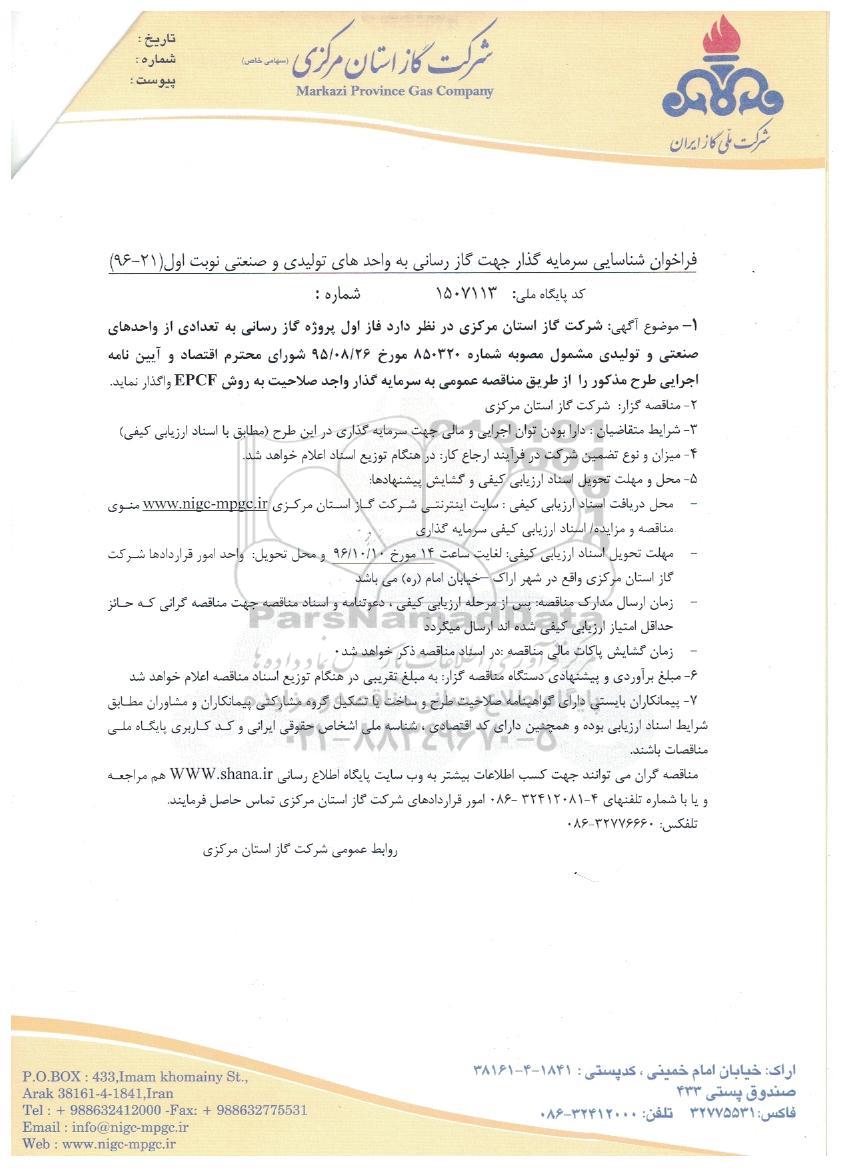 تاریخ :
شماره :
پیوست :
شرکت گاز استان مرکزی (سهامی خاص)
Markazi Province Gas Company
شرکت ملی گاز ایران
فراخوان شناسایی سرمایه گذار جهت گاز رسانی به واحد های تولیدی و صنعتی نوبت اول(۲۱-۹۶)
کد پایگاه ملی: ۱۵۰۷۱۱۳ شماره :
۱- موضوع آگهی: شرکت گاز استان مرکزی در نظر دارد فاز اول پروژه گاز رسانی به تعدادی از واحدهای
صنعتی و تولیدی مشمول مصوبه شماره ۸۵۰۳۲۰ مورخ ۹۵/۰۸/۲۶ شورای محترم اقتصاد و آیین نامه
اجرایی طرح مذکور را از طریق مناقصه عمومی به سرمایه گذار واجد صلاحیت به روش EPCF واگذار نماید.
۲- مناقصه گزار: شرکت گاز استان مرکزی
۳- شرایط متقاضیان : دارا بودن توان اجرایی و مالی جهت سرمایه گذاری در این طرح (مطابق با اسناد ارزیابی کیفی)
۴- میزان و نوع تضمین شرکت در فرآیند ارجاع کار: در هنگام توزیع اسناد اعلام خواهد شد.
۵- محل و مهلت تحویل اسناد ارزیابی کیفی و گشایش پیشنهادها:
- محل دریافت اسناد ارزیابی کیفی : سایت اینترنتی شرکت گاز استان مرکزی www.nigc-mpgc.ir منوی
مناقصه و مزایده/ اسناد ارزیابی کیفی سرمایه گذاری
- مهلت تحویل اسناد ارزیابی کیفی: لغایت ساعت ۱۴ مورخ ۹۶/۱۰/۱۰ و محل تحویل: واحد امور قراردادها شرکت
گاز استان مرکزی واقع در شهر اراک –خیابان امام (ره) می باشد
- زمان ارسال مدارک مناقصه: پس از مرحله ارزیابی کیفی ، دعوتنامه و اسناد مناقصه جهت مناقصه گرانی که حائز
حداقل امتیاز ارزیابی کیفی شده اند ارسال میگردد
- زمان گشایش پاکات مالی مناقصه :در اسناد مناقصه ذکر خواهد شد۰
۶- مبلغ برآوردی و پیشنهادی دستگاه مناقصه گزار: به مبلغ تقریبی در هنگام توزیع اسناد مناقصه اعلام خواهد شد
۷- پیمانکاران بایستی دارای گواهینامه صلاحیت طرح و ساخت با تشکیل گروه مشارکتی پیمانکاران و مشاوران مطابق
شرایط اسناد ارزیابی بوده و همچنین دارای کد اقتصادی ، شناسه ملی اشخاص حقوقی ایرانی و کد کاربری پایگاه ملی
مناقصات باشند.
مناقصه گران می توانند جهت کسب اطلاعات بیشتر به وب سایت پایگاه اطلاع رسانی WWW.shana.ir هم مراجعه
و یا با شماره تلفنهای ۴-۳۲۴۱۲۰۸۱ -۰۸۶ امور قراردادهای شرکت گاز استان مرکزی تماس حاصل فرمایند.
تلفکس: ۳۲۷۷۶۶۶۰-۰۸۶
روابط عمومی شرکت گاز استان مرکزی
ParsNamadData
پایگاه اطلاع رسانی مناقصه و مزایده
۰۲۱-۸۸۳۴۹۶۷۰-۵
اراک: خیابان امام خمینی ، کدپستی : ۱۸۴۱-۴-۳۸۱۶۱
صندوق پستی ۴۳۳
فاکس: ۳۲۷۷۵۵۳۱ تلفن: ۳۲۴۱۲۰۰۰-۰۸۶
P.O.BOX : 433,Imam khomainy St.,
Arak 38161-4-1841,Iran
Tel : + 988632412000 -Fax: + 988632775531
Email : info@nigc-mpgc.ir
Web : www.nigc-mpgc.ir